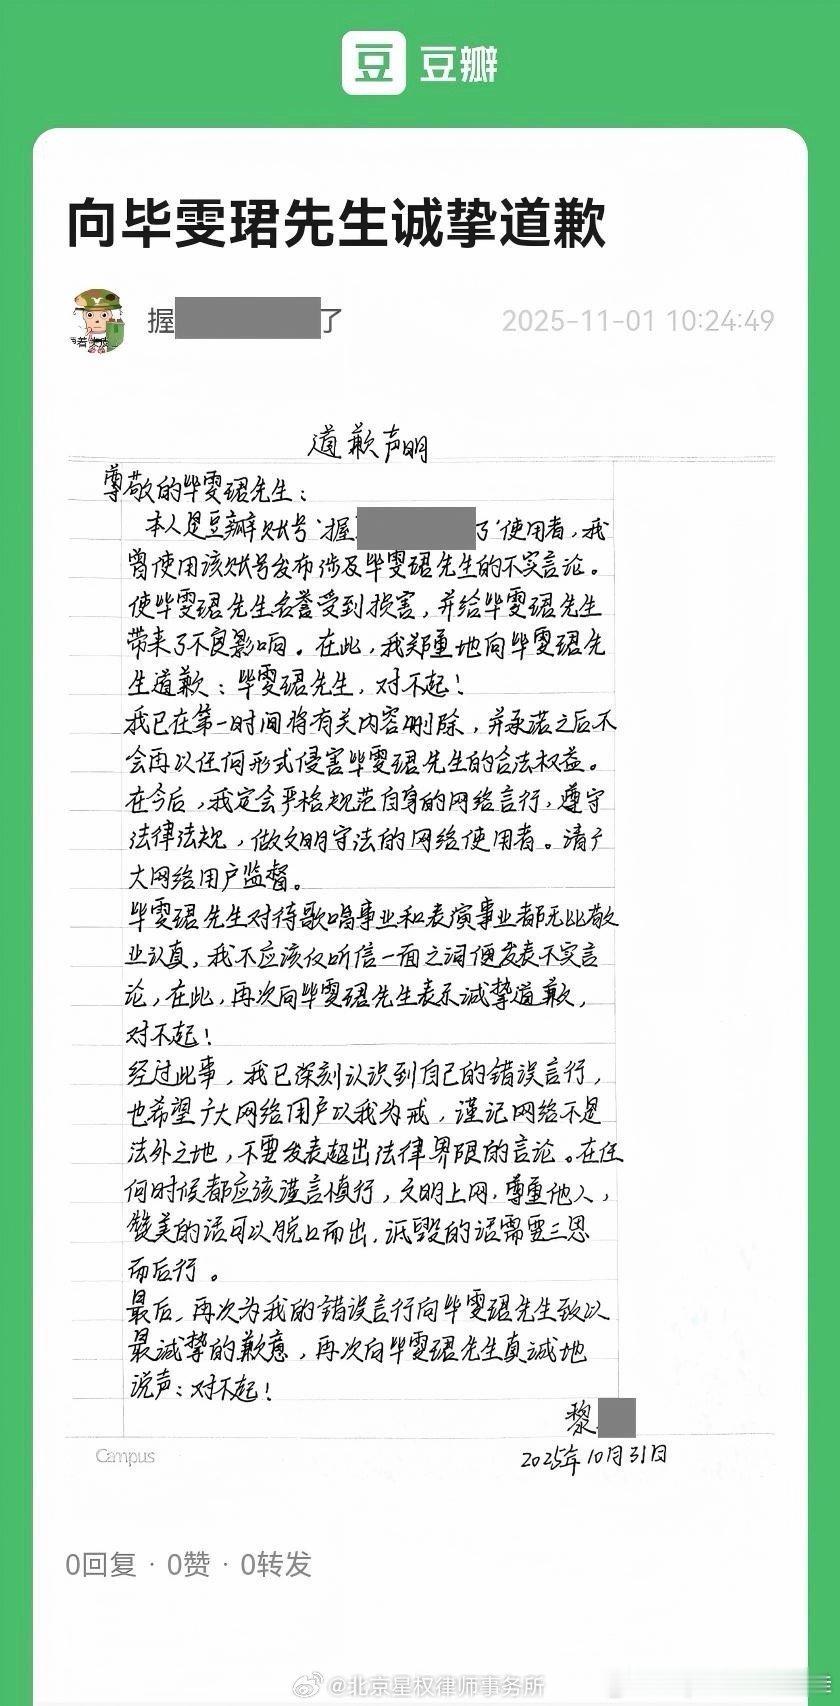 豆 豆瓣
向毕雯珺先生诚挚道歉
握 了 2025-11-01 10:24:49
道歉声明
尊敬的毕雯珺先生：
本人是豆瓣账号‘握 了’使用者，我
曾使用该账号发布涉及毕雯珺先生的不实言论。
使毕雯珺先生名誉受到损害，并给毕雯珺先生
带来了不良影响。在此，我郑重地向毕雯珺先
生道歉：毕雯珺先生，对不起！
我已在第一时间将有关内容删除，并承诺之后不
会再以任何形式侵害毕雯珺先生的合法权益。
在今后，我定会严格规范自身的网络言行，遵守
法律法规，做文明守法的网络使用者。请广
大网络用户监督。
毕雯珺先生对待歌唱事业和表演事业都无比敬
业认真，我不应该仅听信一面之词便发表不实言
论，在此，再次向毕雯珺先生表示诚挚道歉，
对不起！
经过此事，我已深刻认识到自己的错误言行，
也希望广大网络用户以我为戒，谨记网络不是
法外之地，不要发表超出法律界限的言论。在任
何时候都应该谨言慎行，文明上网，尊重他人，
赞美的话可以脱口而出，诋毁的话需要三思
而后行。
最后，再次为我的错误言行向毕雯珺先生致以
最诚挚的歉意，再次向毕雯珺先生真诚地
说声：对不起！
黎
2025年10月31日
Campus
0回复 · 0赞 · 0转发
@北京星权律师事务所